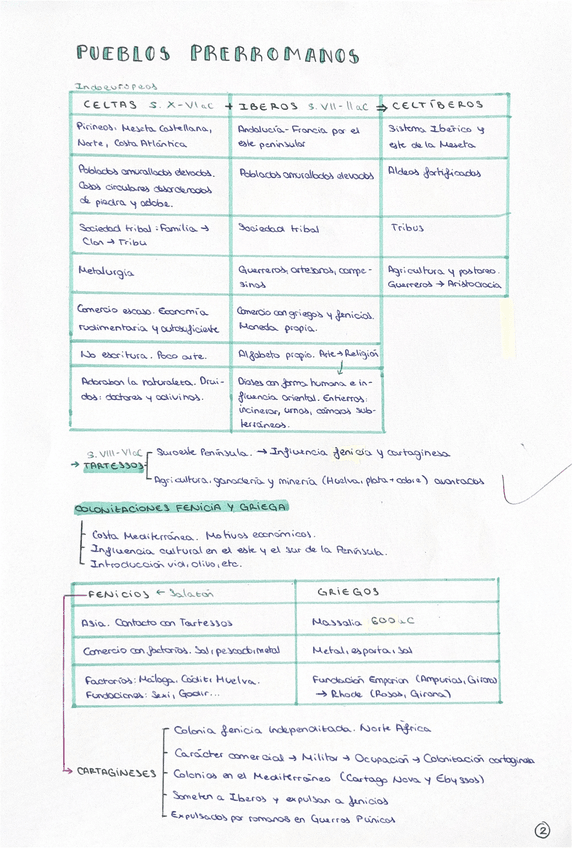 PUEBLOS PRERROMANOS
Indoeuropeos
CELTAS S. X-VI aC + IBEROS S. VII-II aC ⇒ CELTÍBEROS
Pirineos, Meseta Castellana,
Norte, Costa Atlántica
Andalucía-Francia por el
este peninsular
Sistema Ibérico y
este de la Meseta
Poblados amurallados elevados.
Casas circulares desordenadas
de piedra y adobe.
Poblados amurallados elevados
Aldeas fortificadas
Sociedad tribal: Familia →
Clan → Tribu
Sociedad tribal
Tribus
Metalurgia
Guerreros, artesanos, campe-
sinos
Agricultura y pastoreo.
Guerreros → Aristocracia
Comercio escaso. Economía
rudimentaria y autosuficiente
Comercio con griegos y fenicios.
Moneda propia.
No escritura. Poco arte.
Alfabeto propio. Arte → Religión
↓
Adoraban la naturaleza. Drui-
das: doctores y adivinos.
Dioses con forma humana e in-
fluencia oriental. Entierros:
incinerar, urnas, cámaras sub-
terráneas.
S. VIII-VI aC
→ TARTESSOS
Suroeste Península. → Influencia fenicia y cartaginesa
Agricultura, ganadería y minería (Huelva, plata + cobre) avanzados
COLONIZACIONES FENICIA Y GRIEGA
Costa Mediterránea. Motivos económicos.
Influencia cultural en el este y el sur de la Península.
Introducción vid, olivo, etc.
FENICIOS ← Salazón
GRIEGOS
Asia. Contacto con Tartessos
Massalia 600 aC
Comercio con factorías. Sal, pescado, metal
Metal, esparto, sal
Factorías: Málaga, Cádiz, Huelva.
Fundaciones: Sexi, Gadir...
Fundación Emporion (Ampurias, Girona)
→ Rhode (Rosas, Girona)
→ CARTAGINESES
Colonia fenicia independizada. Norte África
Carácter comercial → Militar → Ocupación → Colonización cartaginesa
Colonias en el Mediterráneo (Cartago Nova y Ebyssos)
Someten a Iberos y expulsan a fenicios
Expulsados por romanos en Guerras Púnicas
2